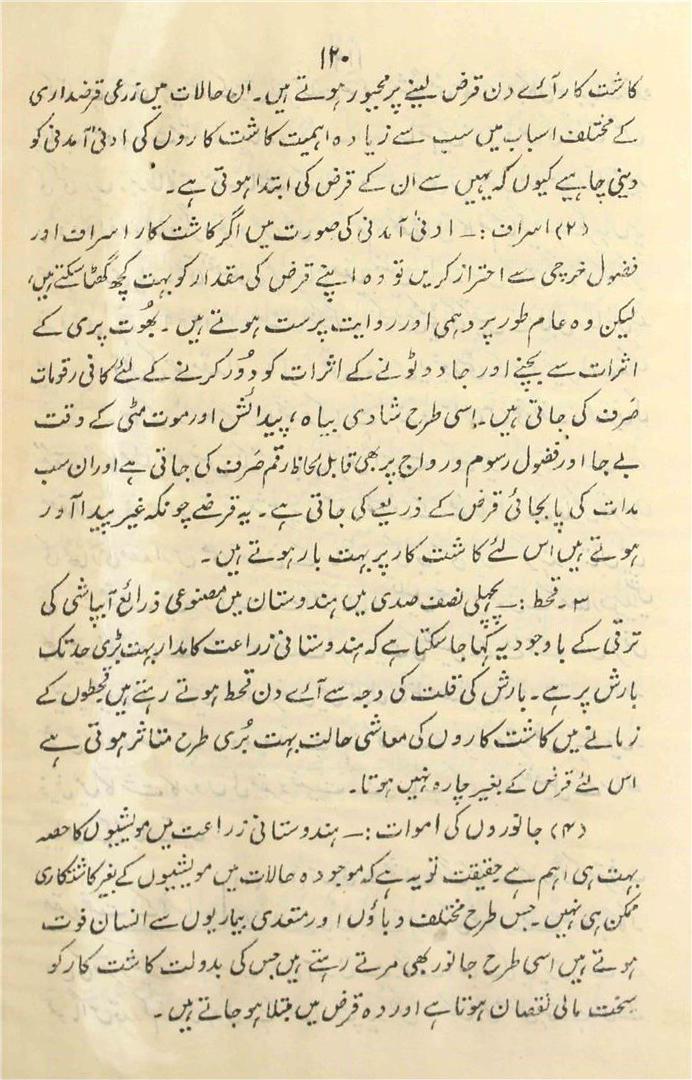 ۱۲۰
کاشت کار آئے دن قرض لینے پر مجبور ہوتے ہیں۔ ان حالات میں زرعی قرضداری
کے مختلف اسباب میں سب سے زیادہ اہمیت کاشت کاروں کی ادنیٰ آمدنی کو
دینی چاہیے کیوں کہ یہیں سے ان کے قرض کی ابتدا ہوتی ہے۔
(۲) اسراف :۔ ادنیٰ آمدنی کی صورت میں اگر کاشت کار اسراف اور
فضول خرچی سے احتراز کریں تو وہ اپنے قرض کی مقدار کو بہت کچھ گھٹا سکتے ہیں،
لیکن وہ عام طور پر وہمی اور روایت پرست ہوتے ہیں۔ بھُوت پری کے
اثرات سے بچنے اور جادو ٹونے کے اثرات کو دُور کرنے کے لئے کافی رقومات
صَرف کی جاتی ہیں۔ اِسی طرح شادی بیاہ، پیدائش اور موت مٹی کے وقت
بے جا اور فضول رسوم و رواج پر بھی قابل لحاظ رقم صَرف کی جاتی ہے اور ان سب
مدات کی پابجائی قرض کے ذریعے کی جاتی ہے۔ یہ قرضے چونکہ غیر پیدا آور
ہوتے ہیں اس لئے کاشت کار پر بہت بار ہوتے ہیں۔
۳۔ قحط :۔ پچھلی نصف صدی میں ہندوستان میں مصنوعی ذرائع آبپاشی کی
ترقی کے باوجود یہ کہا جا سکتا ہے کہ ہندوستانی زراعت کا مدار بہت بڑی حد تک
بارش پر ہے۔ بارش کی قلت کی وجہ سے آئے دن قحط ہوتے رہتے ہیں قحطوں کے
زمانے میں کاشت کاروں کی معاشی حالت بہت بُری طرح متاثر ہوتی ہے
اس لئے قرض کے بغیر چارہ نہیں ہوتا۔
(۴) جانوروں کی اموات :۔ ہندوستانی زراعت میں مویشیوں کا حصہ
بہت ہی اہم ہے حقیقت تو یہ ہے کہ موجودہ حالات میں مویشیوں کے بغیر کاشتکاری
ممکن ہی نہیں۔ جس طرح مختلف وباؤں اور متعدی بیماریوں سے انسان فوت
ہوتے ہیں اسی طرح جانور بھی مرتے رہتے ہیں جس کی بدولت کاشت کار کو
سخت مالی نقصان ہوتا ہے اور وہ قرض میں مبتلا ہو جاتے ہیں۔